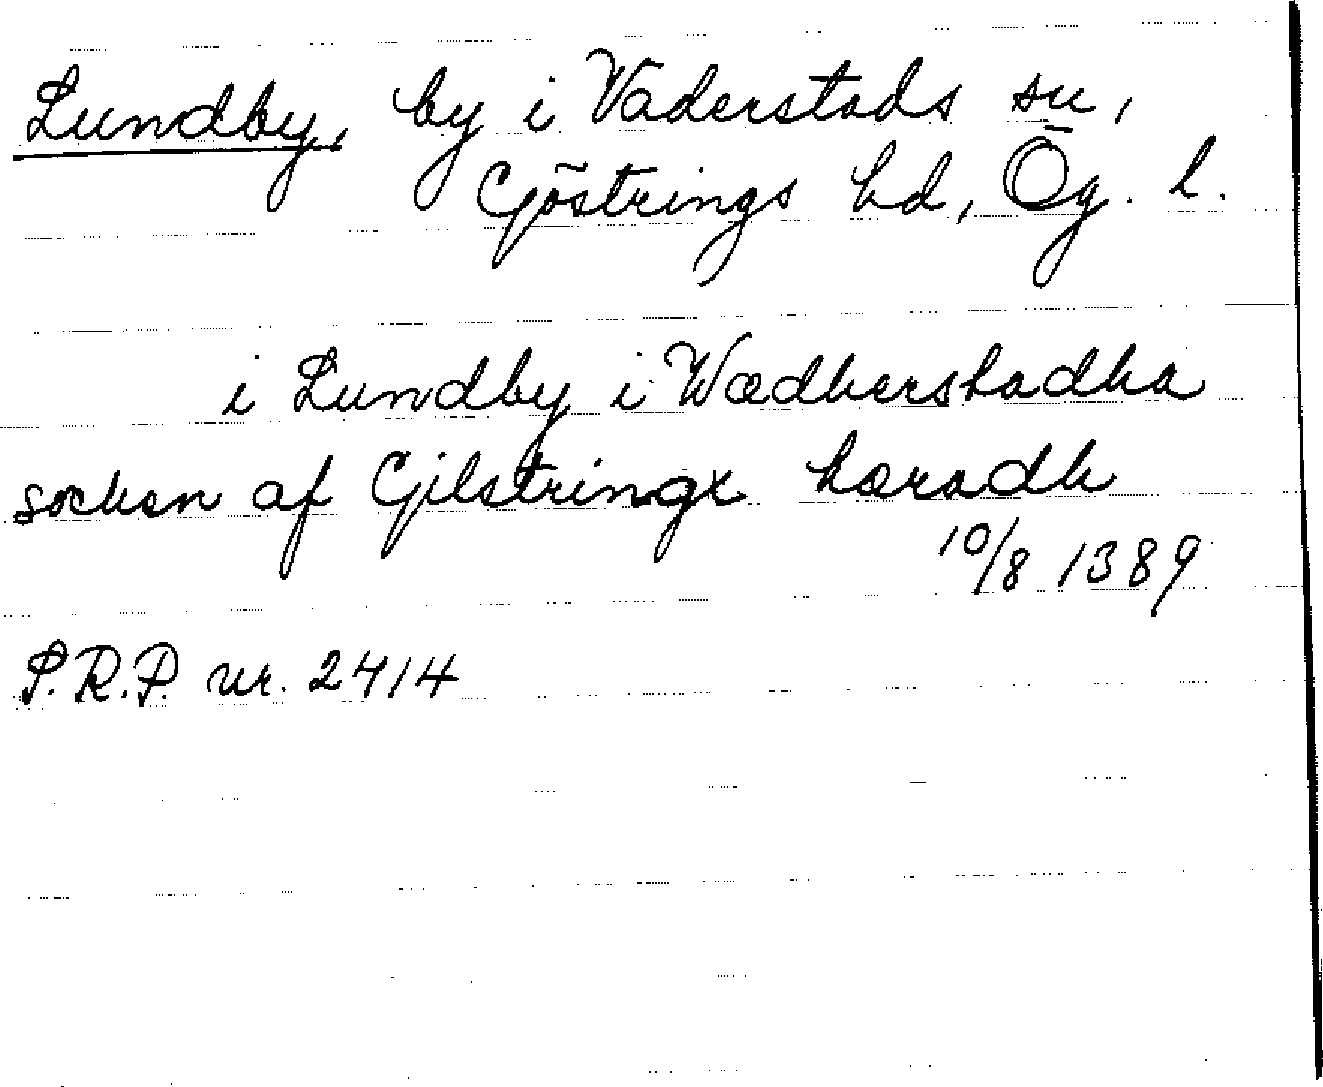 Lundby, by i Väderstads sn,
Göstrings hd, Ög. l.
i Lundby i Wædherstadha
sochan af Gilstringx hæradh
10/8 1389
S.R.P. nr. 2414